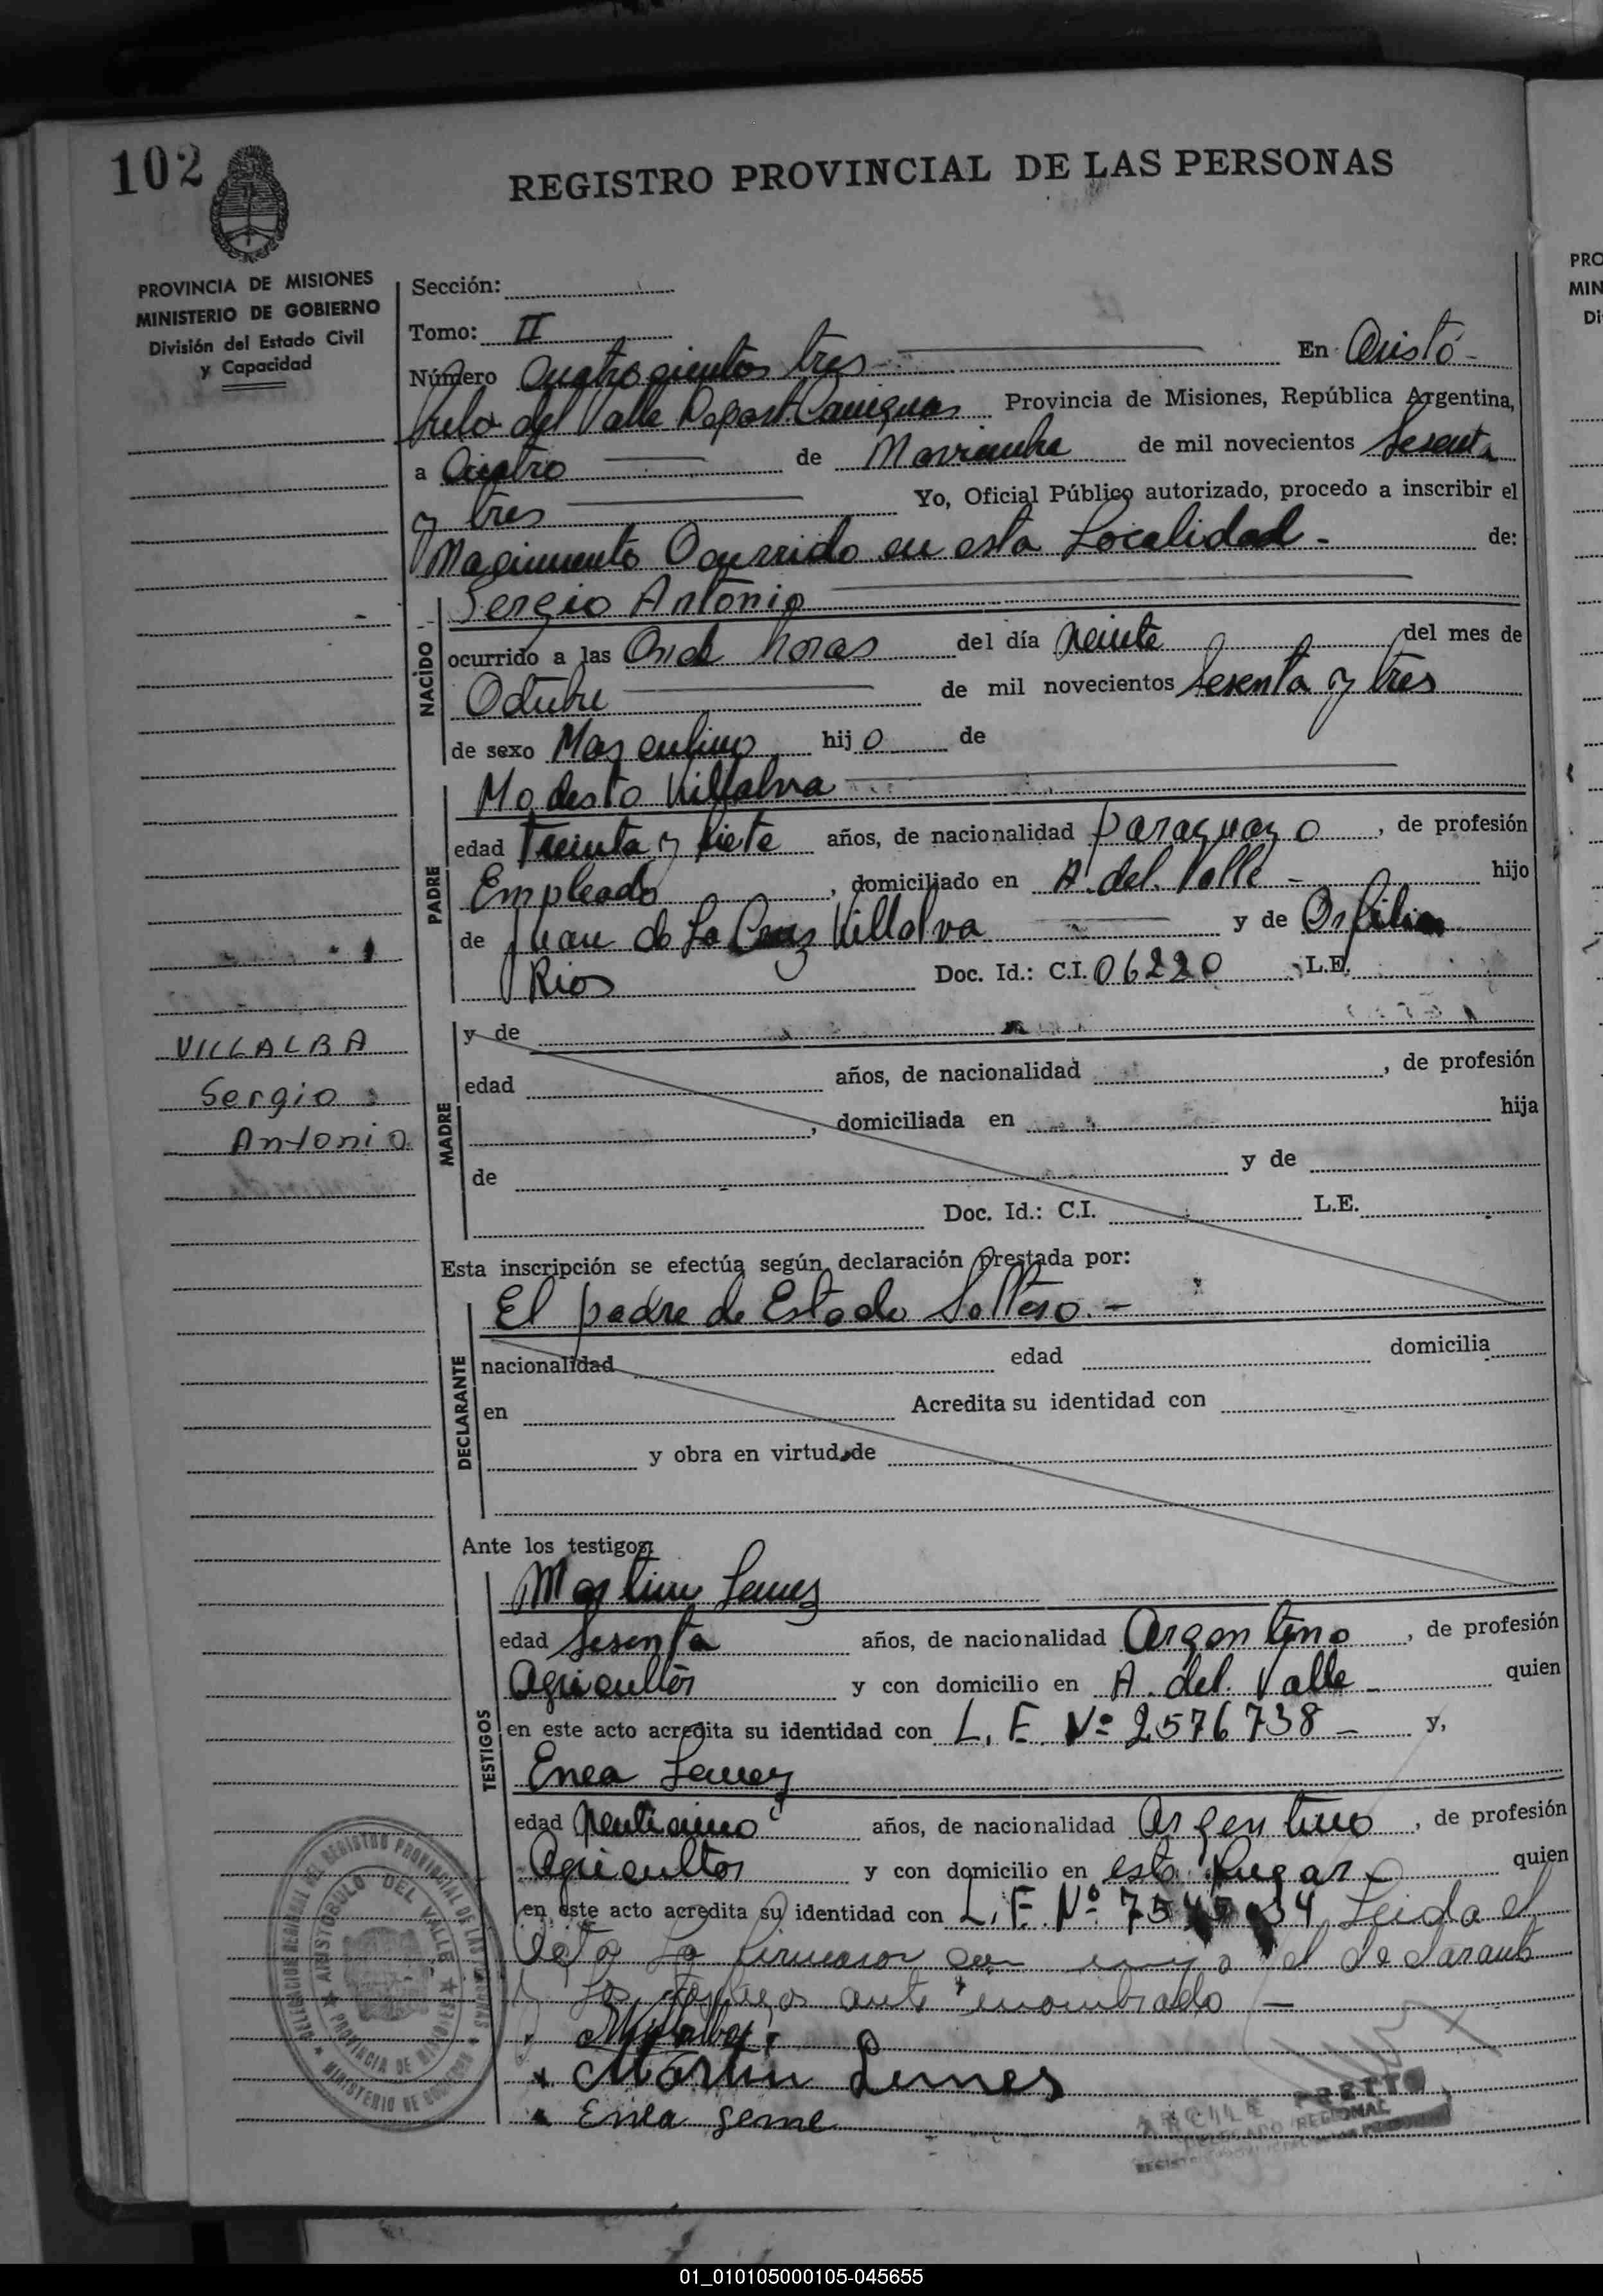 102
REGISTRO PROVINCIAL DE LAS PERSONAS
PROVINCIA DE MISIONES
MINISTERIO DE GOBIERNO
División del Estado Civil
y Capacidad
Sección:
Tomo: II
Número Cuatrocientos tres En Aristó
bulo del Valle Depart. Cainguas Provincia de Misiones, República Argentina,
a Cuatro de Noviembre de mil novecientos Sesenta
y tres Yo, Oficial Público autorizado, procedo a inscribir el
Nacimiento Ocurrido en esta Localidad - de:
NACIDO
Sergio Antonio
ocurrido a las Once horas del día veinte del mes de
Octubre de mil novecientos Sesenta y tres
de sexo Masculino hij o de
PADRE
Modesto Villalva
edad treinta y siete años, de nacionalidad paraguayo, de profesión
Empleado, domiciliado en A. del Valle - hijo
de Juan de La Cruz Villalva y de Osfilia
Rios Doc. Id.: C.I. 06220 L.E.
VILLALBA
Sergio
Antonio
MADRE
y de
edad años, de nacionalidad , de profesión
, domiciliada en hija
de y de
Doc. Id.: C.I. L.E.
Esta inscripción se efectúa según declaración prestada por:
DECLARANTE
El padre de Estado Soltero. -
nacionalidad edad domicilia
en Acredita su identidad con
y obra en virtud de
Ante los testigos:
TESTIGOS
Martin Lemes
edad sesenta años, de nacionalidad Argentino, de profesión
Agricultor y con domicilio en A. del Valle - quien
en este acto acredita su identidad con L. E. Nº 2576738 - y,
Enea Lemes
edad años, de nacionalidad Argentino, de profesión
Agricultor y con domicilio en este lugar - quien
en este acto acredita su identidad con L. E. Nº Leida el
Acta la el declarante
y los testigos ante nombrado -
Martin Lemes
Enea leme
DELEGACION REGIONAL DEL REGISTRO PROVINCIAL DE LAS PERSONAS
MINISTERIO DE GOBIERNO
ARISTOBULO DEL VALLE
PROVINCIA DE MISIONES
DELEGADO REGIONAL
PRO
MIN
Di
01_010105000105-045655